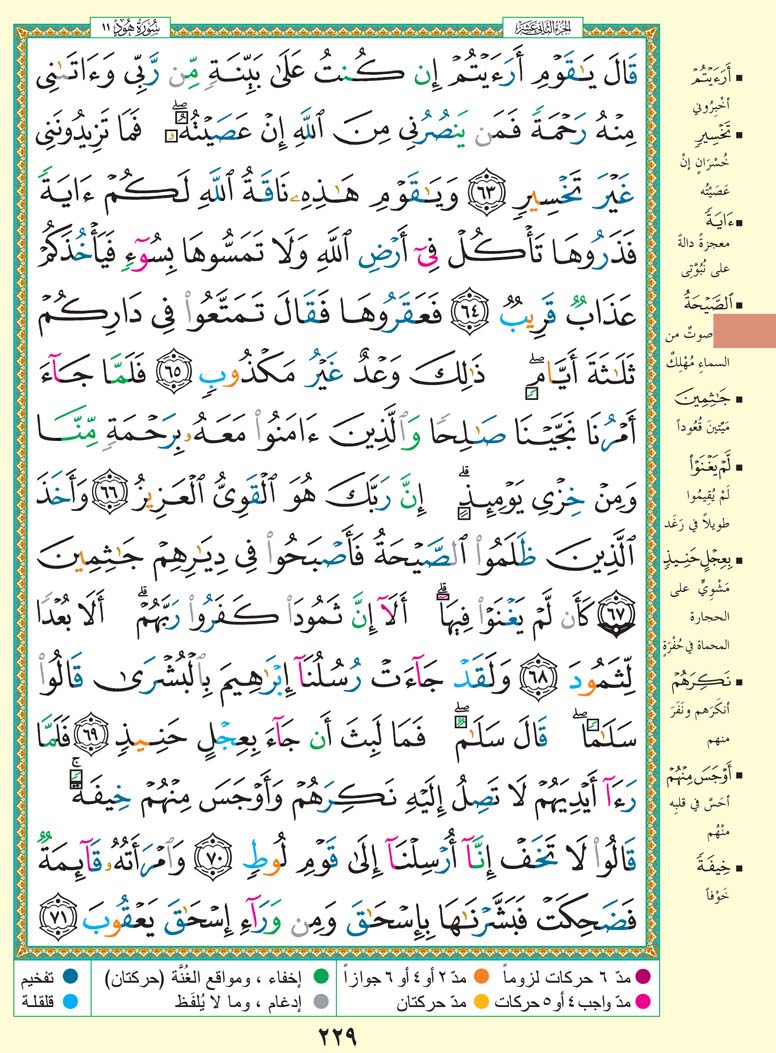 الجزء الثاني عشر
سورة هود ١١
قَالَ يَٰقَوْمِ أَرَءَيْتُمْ إِن كُنتُ عَلَىٰ بَيِّنَةٍ مِّن رَّبِّى وَءَاتَىٰنِى
مِنْهُ رَحْمَةً فَمَن يَنصُرُنِى مِنَ ٱللَّهِ إِنْ عَصَيْتُهُۥ ۖ فَمَا تَزِيدُونَنِى
غَيْرَ تَخْسِيرٍ ٦٣ وَيَٰقَوْمِ هَٰذِهِۦ نَاقَةُ ٱللَّهِ لَكُمْ ءَايَةً
فَذَرُوهَا تَأْكُلْ فِىٓ أَرْضِ ٱللَّهِ وَلَا تَمَسُّوهَا بِسُوٓءٍ فَيَأْخُذَكُمْ
عَذَابٌ قَرِيبٌ ٦٤ فَعَقَرُوهَا فَقَالَ تَمَتَّعُوا۟ فِى دَارِكُمْ
ثَلَٰثَةَ أَيَّامٍ ۖ ذَٰلِكَ وَعْدٌ غَيْرُ مَكْذُوبٍ ٦٥ فَلَمَّا جَآءَ
أَمْرُنَا نَجَّيْنَا صَٰلِحًا وَٱلَّذِينَ ءَامَنُوا۟ مَعَهُۥ بِرَحْمَةٍ مِّنَّا
وَمِنْ خِزْىِ يَوْمِئِذٍ ۗ إِنَّ رَبَّكَ هُوَ ٱلْقَوِىُّ ٱلْعَزِيزُ ٦٦ وَأَخَذَ
ٱلَّذِينَ ظَلَمُوا۟ ٱلصَّيْحَةُ فَأَصْبَحُوا۟ فِى دِيَٰرِهِمْ جَٰثِمِينَ
٦٧ كَأَن لَّمْ يَغْنَوْا۟ فِيهَآ ۗ أَلَآ إِنَّ ثَمُودَا۟ كَفَرُوا۟ رَبَّهُمْ ۗ أَلَا بُعْدًا
لِّثَمُودَ ٦٨ وَلَقَدْ جَآءَتْ رُسُلُنَآ إِبْرَٰهِيمَ بِٱلْبُشْرَىٰ قَالُوا۟
سَلَٰمًا ۖ قَالَ سَلَٰمٌ ۖ فَمَا لَبِثَ أَن جَآءَ بِعِجْلٍ حَنِيذٍ ٦٩ فَلَمَّا
رَءَآ أَيْدِيَهُمْ لَا تَصِلُ إِلَيْهِ نَكِرَهُمْ وَأَوْجَسَ مِنْهُمْ خِيفَةً ۚ
قَالُوا۟ لَا تَخَفْ إِنَّآ أُرْسِلْنَآ إِلَىٰ قَوْمِ لُوطٍ ٧٠ وَٱمْرَأَتُهُۥ قَآئِمَةٌ
فَضَحِكَتْ فَبَشَّرْنَٰهَا بِإِسْحَٰقَ وَمِن وَرَآءِ إِسْحَٰقَ يَعْقُوبَ ٧١
▪ أَرَءَيْتُمْ
أخبِرُوني
▪ تَخْسِيرٍ
خُسْرَانٍ إنْ
عَصَيْتُه
▪ ءَايَةً
معجزةً دالةً
على نُبُوَّتِي
▪ ٱلصَّيْحَةُ
صوتٌ من
السماءِ مُهْلِكٌ
▪ جَٰثِمِينَ
مَيِّتِينَ قُعُوداً
▪ لَّمْ يَغْنَوْا۟
لَمْ يُقِيمُوا
طويلاً في رَغَد
▪ بِعِجْلٍ حَنِيذٍ
مَشْوِيٍّ على
الحجارة
المحماة في حُفْرَةٍ
▪ نَكِرَهُمْ
أنكَرَهم ونَفَرَ
منهم
▪ أَوْجَسَ مِنْهُمْ
أحَسَّ في قلبِه
منْهُم
▪ خِيفَةً
خَوْفاً
مدّ ٦ حركات لزوماً مدّ ٢ أو ٤ أو ٦ جوازاً إخفاء ، ومواقع الغُنَّة (حركتان) تفخيم
مدّ واجب ٤ أو ٥ حركات مدّ حركتان إدغام ، وما لا يُلفَظ قلقلة
٢٢٩